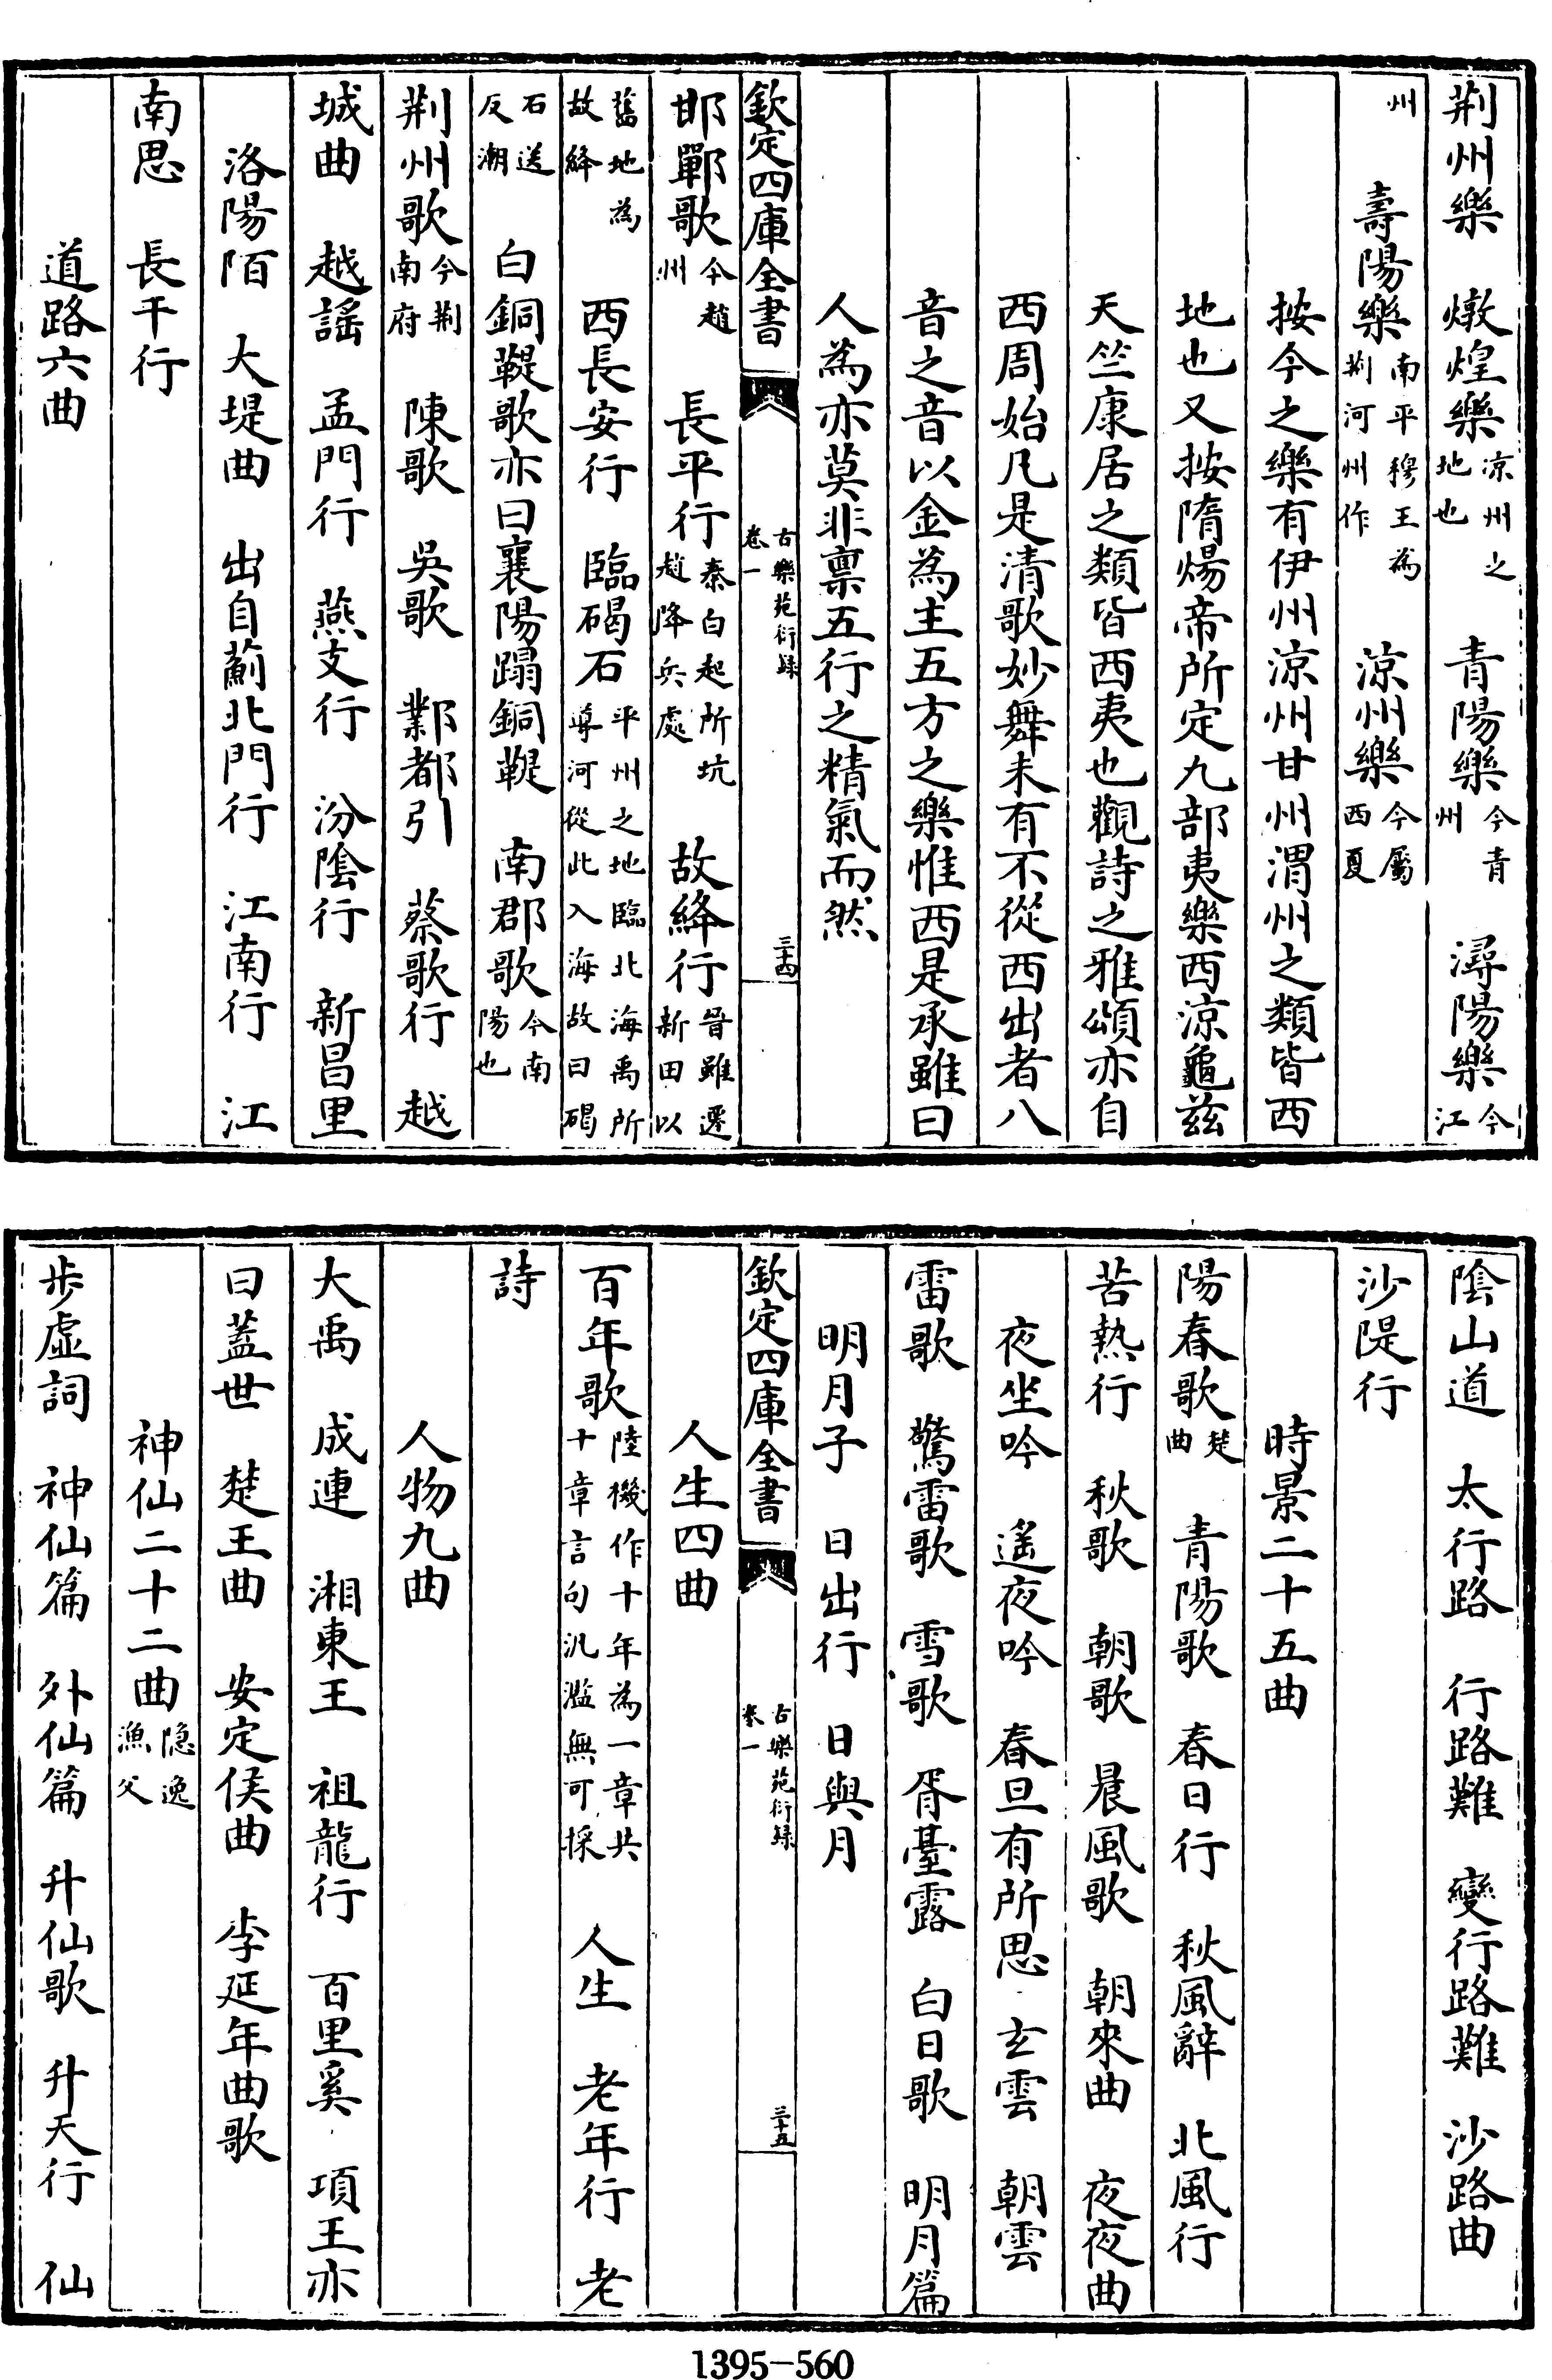 荆州樂　燉煌樂凉州之地也　青陽樂今青州　潯陽樂今江
州　壽陽樂南平穆王為荆河州作　凉州樂今屬西夏
按今之樂有伊州涼州甘州渭州之類皆西
地也又按隋煬帝所定九部夷樂西涼龜茲
天竺康居之類皆西夷也觀詩之雅頌亦自
西周始凡是清歌妙舞未有不從西出者八
音之音以金為主五方之樂惟西是承雖曰
人為亦莫非禀五行之精氣而然
欽定四庫全書　古樂苑衍録卷一　三十四
邯鄲歌今趙州　長平行秦白起所坑趙降兵處　故絳行晉雖遷新田以
舊地為故絳　西長安行　臨碣石平州之地臨北海禹所導河從此入海故曰碣
石送反潮　白銅鞮歌亦曰襄陽蹋銅鞮　南郡歌今南陽也
荆州歌今荆南府　陳歌　吳歌　鄴都引　蔡歌行　越
城曲　越謠　孟門行　燕支行　汾陰行　新昌里
洛陽陌　大堤曲　出自薊北門行　江南行　江
南思　長干行
道路六曲
陰山道　太行路　行路難　變行路難　沙路曲
沙隄行
時景二十五曲
陽春歌楚曲　青陽歌　春日行　秋風辭　北風行
苦熱行　秋歌　朝歌　晨風歌　朝來曲　夜夜曲
夜坐吟　遥夜吟　春旦有所思　玄雲　朝雲
雷歌　驚雷歌　雪歌　胥臺露　白日歌　明月篇
明月子　日出行　日與月
欽定四庫全書　古樂苑衍録卷一　三十五
人生四曲
百年歌陸機作十年為一章共十章言句汎濫無可採　人生　老年行　老
詩
人物九曲
大禹　成連　湘東王　祖龍行　百里奚　項王亦
曰蓋世　楚王曲　安定侯曲　李延年曲歌
神仙二十二曲隐逸漁父
步虛詞　神仙篇　外仙篇　升仙歌　升天行　仙
1395-560